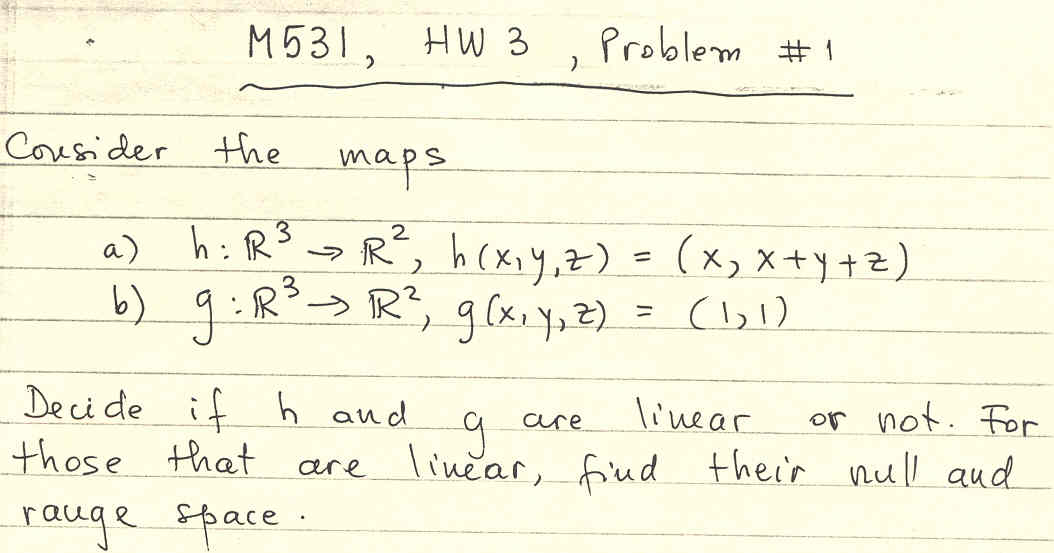 M531, HW 3, Problem #1
Consider the maps
a) h: ℝ³ → ℝ², h(x,y,z) = (x, x+y+z)
b) g: ℝ³ → ℝ², g(x,y,z) = (1,1)
Decide if h and g are linear or not. For
those that are linear, find their null and
range space.